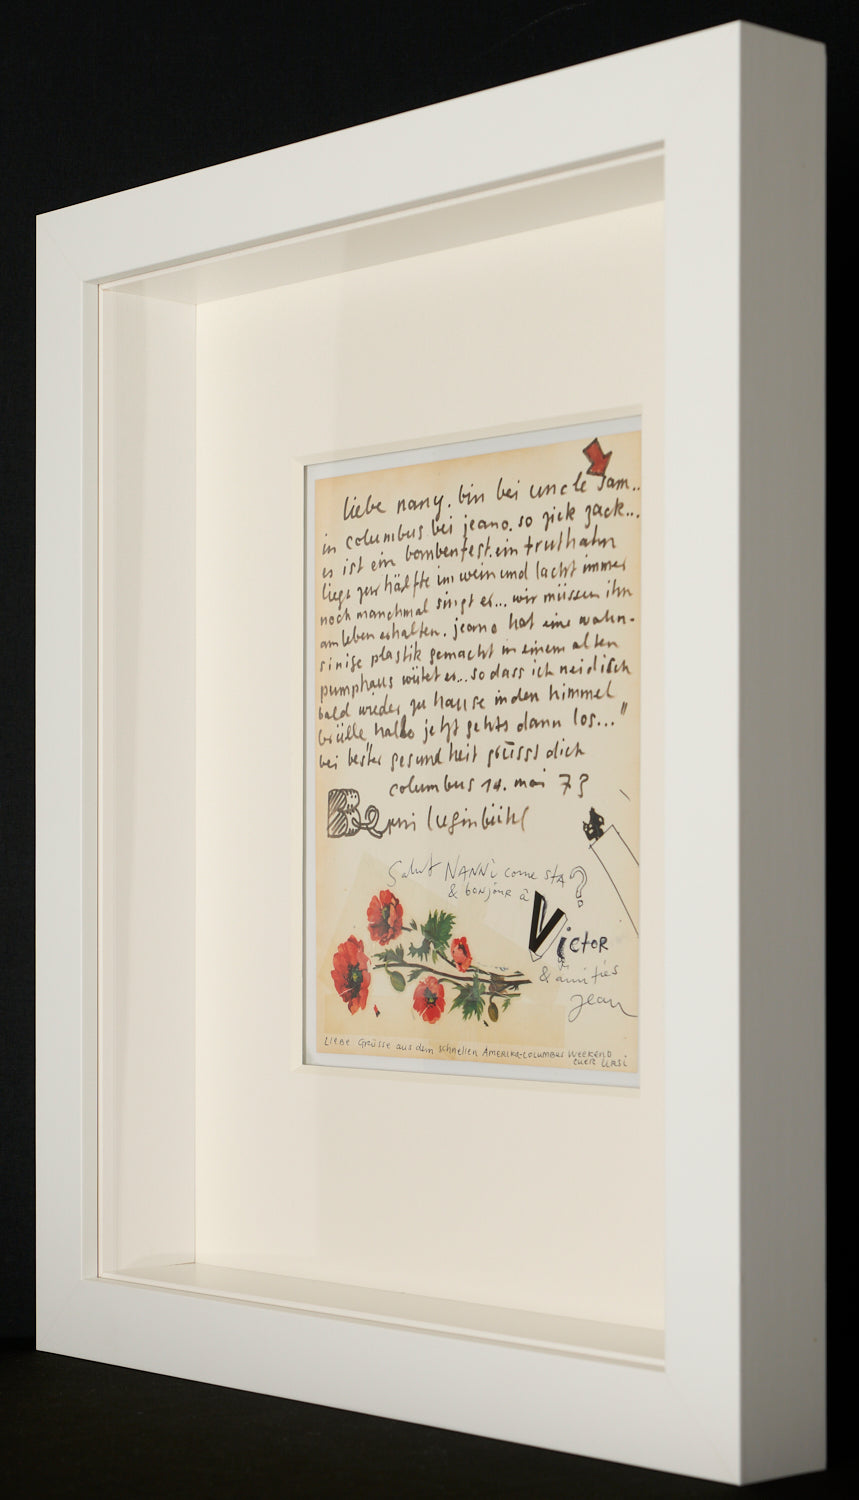 liebe nany. bin bei uncle sam..
in columbus bei jeano. so zick zack...
es ist ein bombenfest. ein truthahn
liegt zur hälfte im wein und lacht immer
noch manchmal singt er... wir müssen ihn
am leben erhalten. jeano hat eine wahn-
sinige plastik gemacht in einem alten
pumphaus wütet er... so dass ich neidisch
bald wieder zu hause in den himmel
brülle hallo jetzt gehts dann los..."
bei bester gesundheit grüsst dich
columbus 14. mai 73
Berni luginbühl
Salut NANNi come stA ?
& bonjour à
Victor
& amitiés
Jean
LIEBE GRÜSSE aus dem schnellen AMERIKA-COLUMBUS WEEKEND
EUER URSI